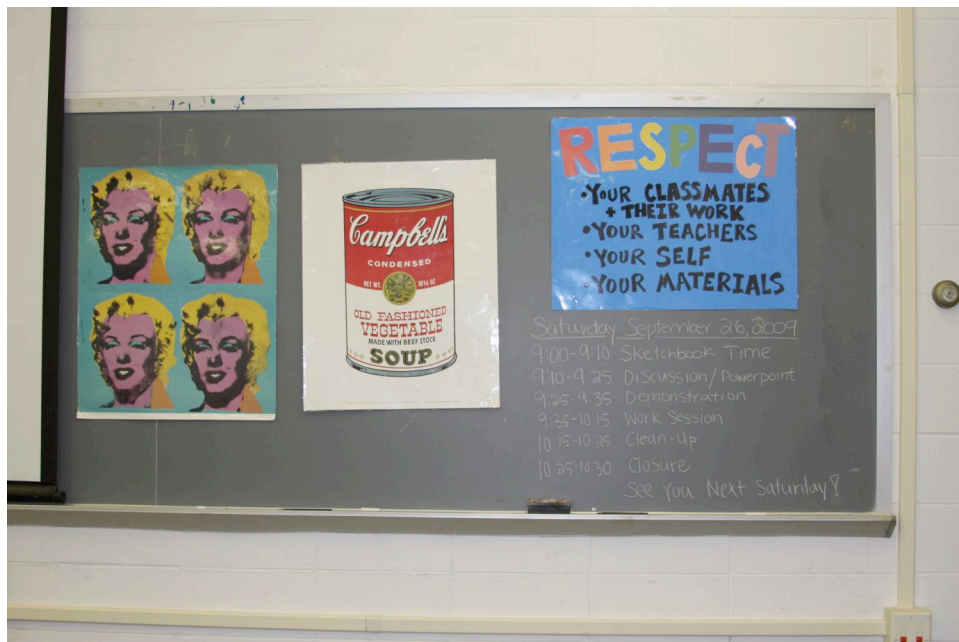 Campbell's
CONDENSED
NET WT. 10¾ OZ
OLD FASHIONED
VEGETABLE
MADE WITH BEEF STOCK
SOUP
RESPECT
•YOUR CLASSMATES
+ THEIR WORK
•YOUR TEACHERS
•YOUR SELF
•YOUR MATERIALS
Saturday September 26, 2009
9:00-9:10 Sketchbook Time
9:10-9:25 Discussion/Powerpoint
9:25-9:35 Demonstration
9:35-10:15 Work Session
10:15-10:25 Clean-Up
10:25-10:30 Closure
See You Next Saturday!